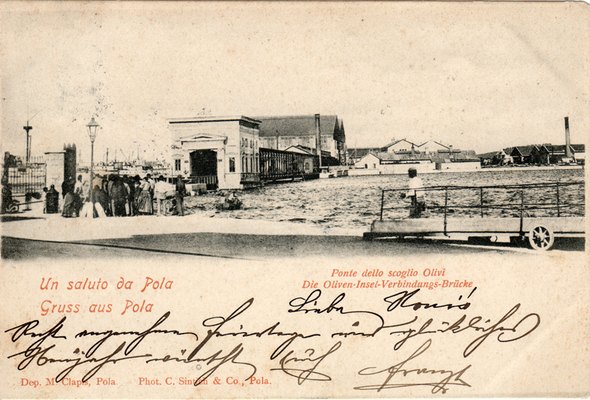 Un saluto da Pola
Gruss aus Pola
Ponte dello scoglio Olivi
Die Oliven-Insel-Verbindungs-Brücke
Liebe
Recht angenehme Feiertage und glückliches
Neujahr wünscht Euch Franz
Dep. M. Clapis, Pola. Phot. C. & Co., Pola.